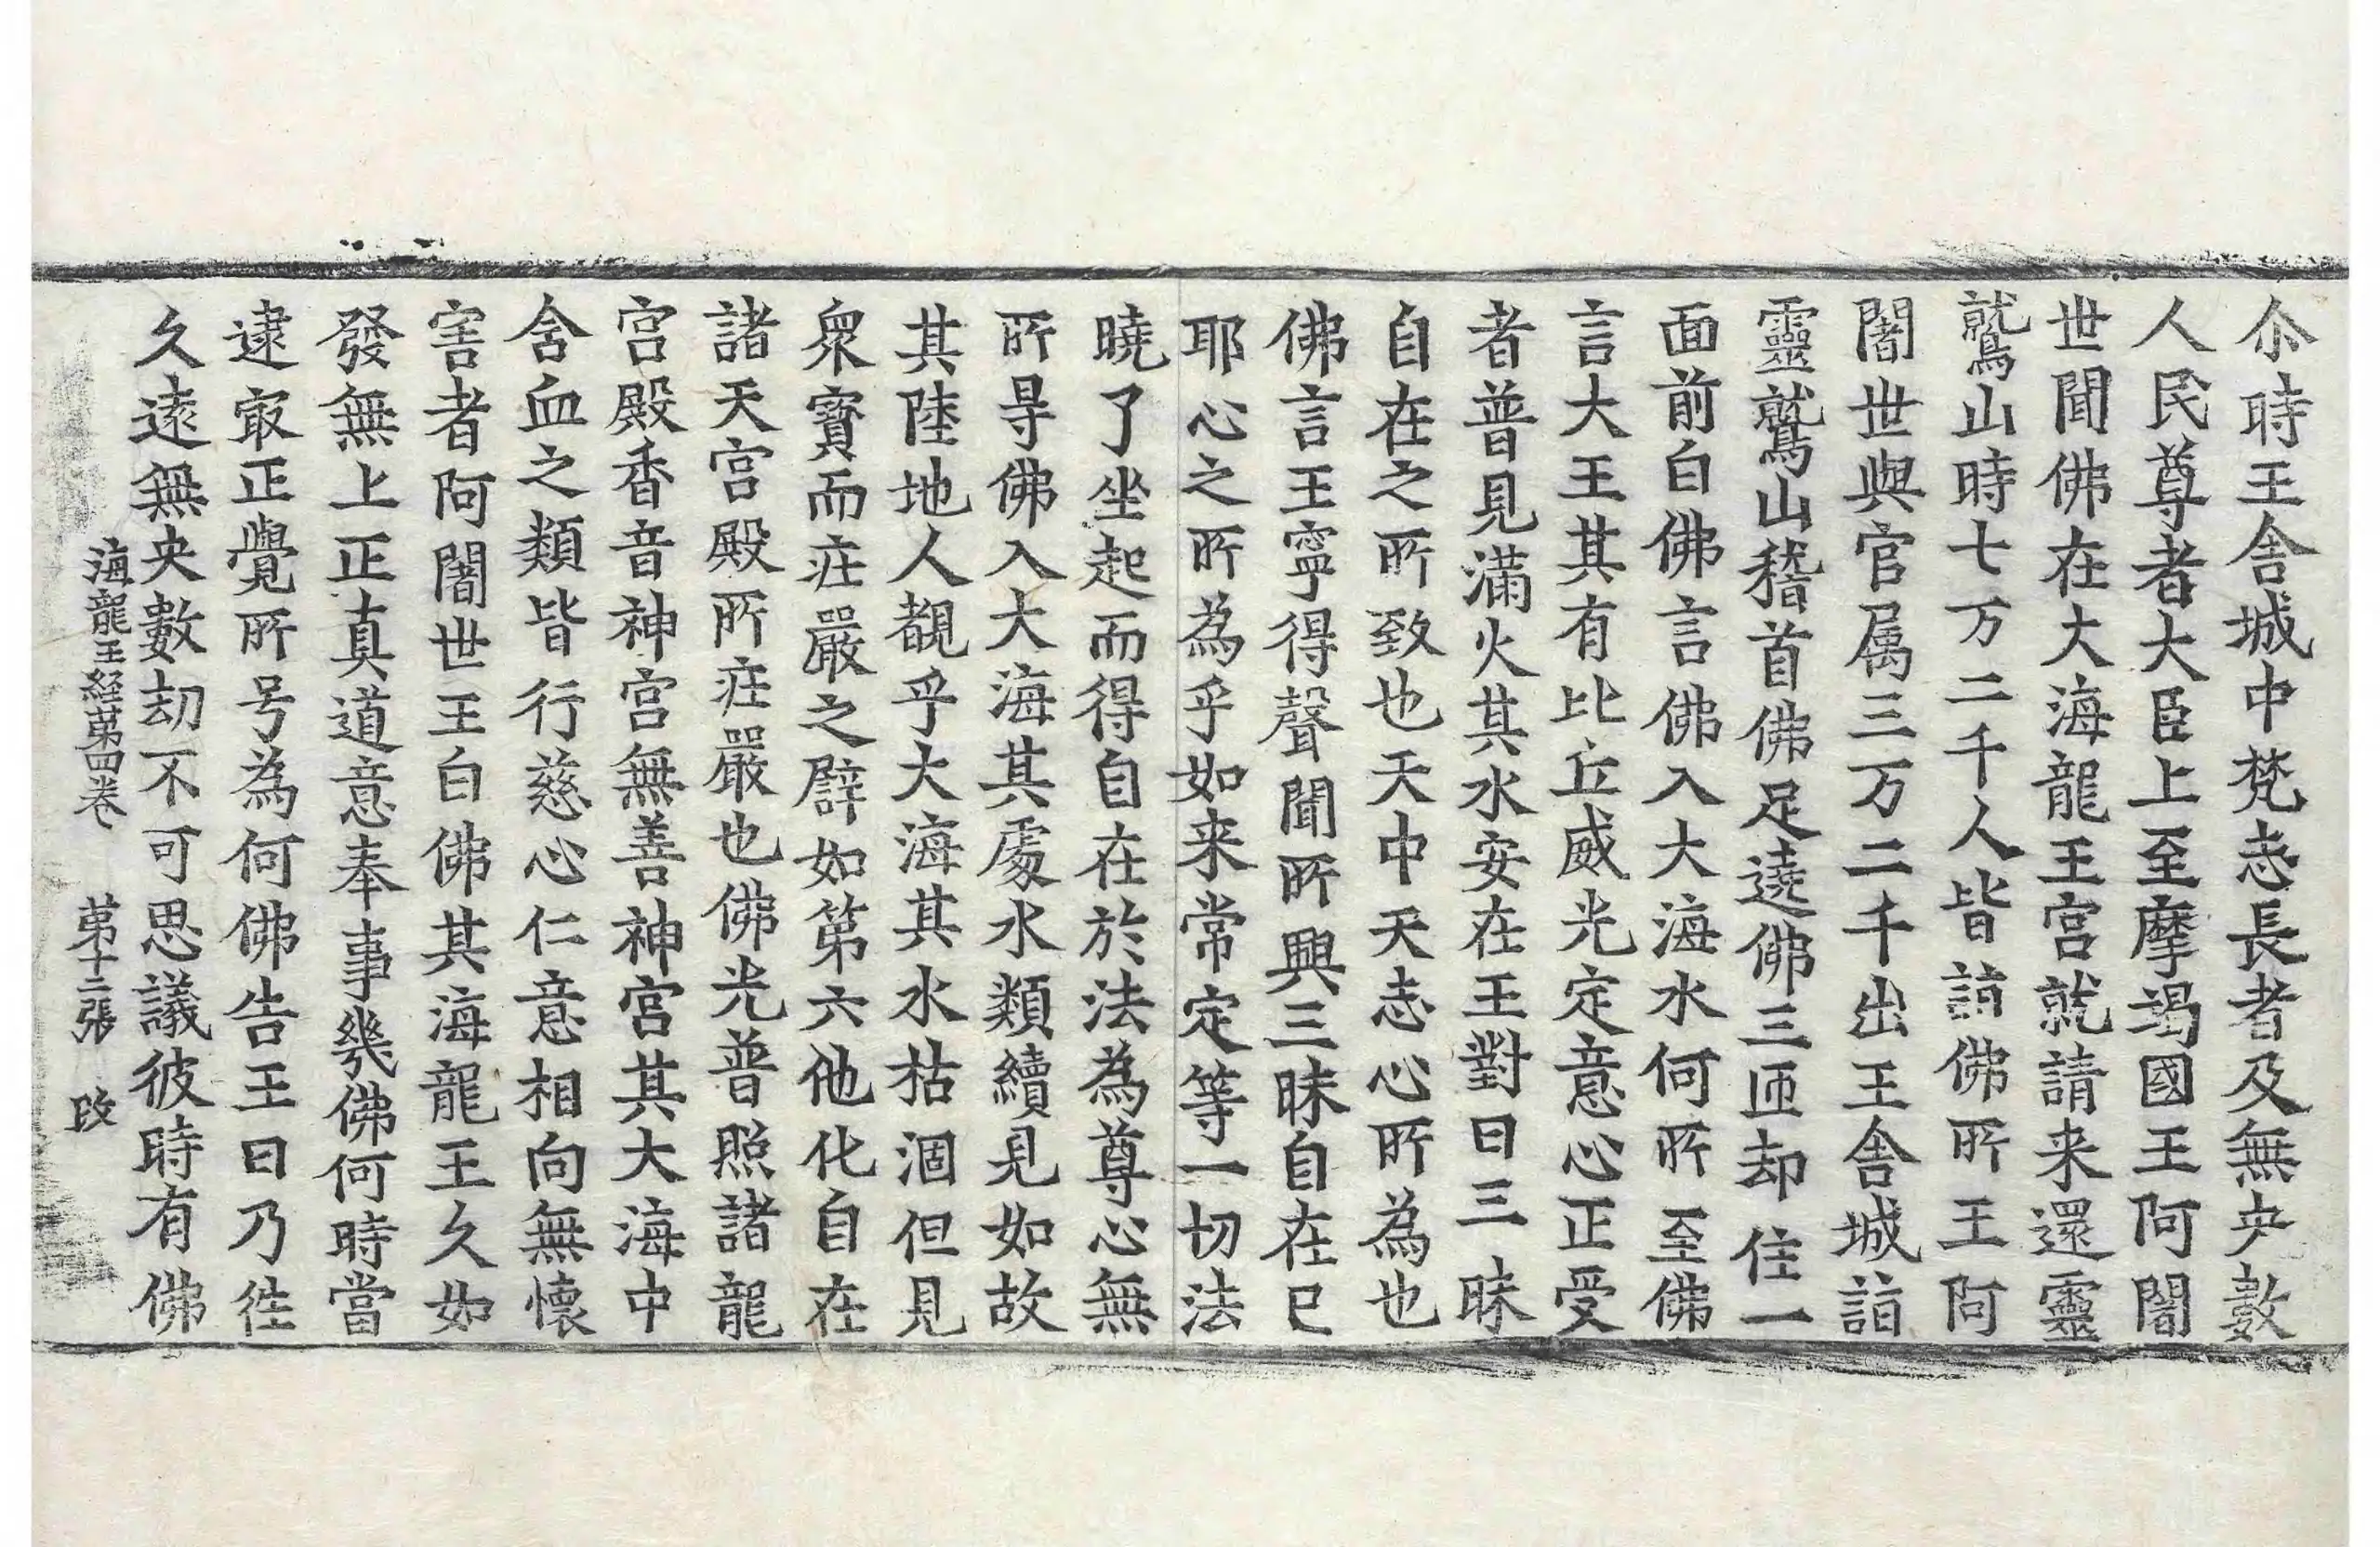 尒時王舍城中梵志長者及無央數
人民尊者大臣上至摩竭國王阿闍
世聞佛在大海龍王宮就請来還靈
鷲山時七万二千人皆詣佛所王阿
闍世與官属三万二千出王舍城詣
靈鷲山稽首佛足遶佛三匝却住一
面前白佛言佛入大海水何所至佛
言大王其有比丘威光定意心正受
者普見滿火其水安在王對曰三昧
自在之所致也天中天志心所為也
佛言王寧得聲聞所興三昧自在已
耶心之所為乎如来常定等一切法
曉了坐起而得自在於法為尊心無
所㝵佛入大海其處水類續見如故
其陸地人覩乎大海其水枯涸但見
衆寶而莊嚴之譬如第六他化自在
諸天宮殿所莊嚴也佛光普照諸龍
宮殿香音神宮無善神宮其大海中
含血之類皆行慈心仁意相向無懷
害者阿闍世王白佛其海龍王久如
發無上正真道意奉事幾佛何時當
逮㝡正覺所号為何佛告王曰乃徃
久遠無央數劫不可思議彼時有佛
海龍王經第四卷　第十二張　改